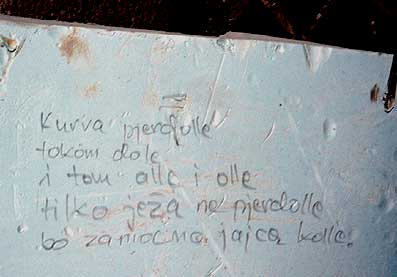 Kurva pjerdolle
tokom dole
i tom alle i olle
tilko jeża ne pjerdolle
bo zamocno jajca kolle!